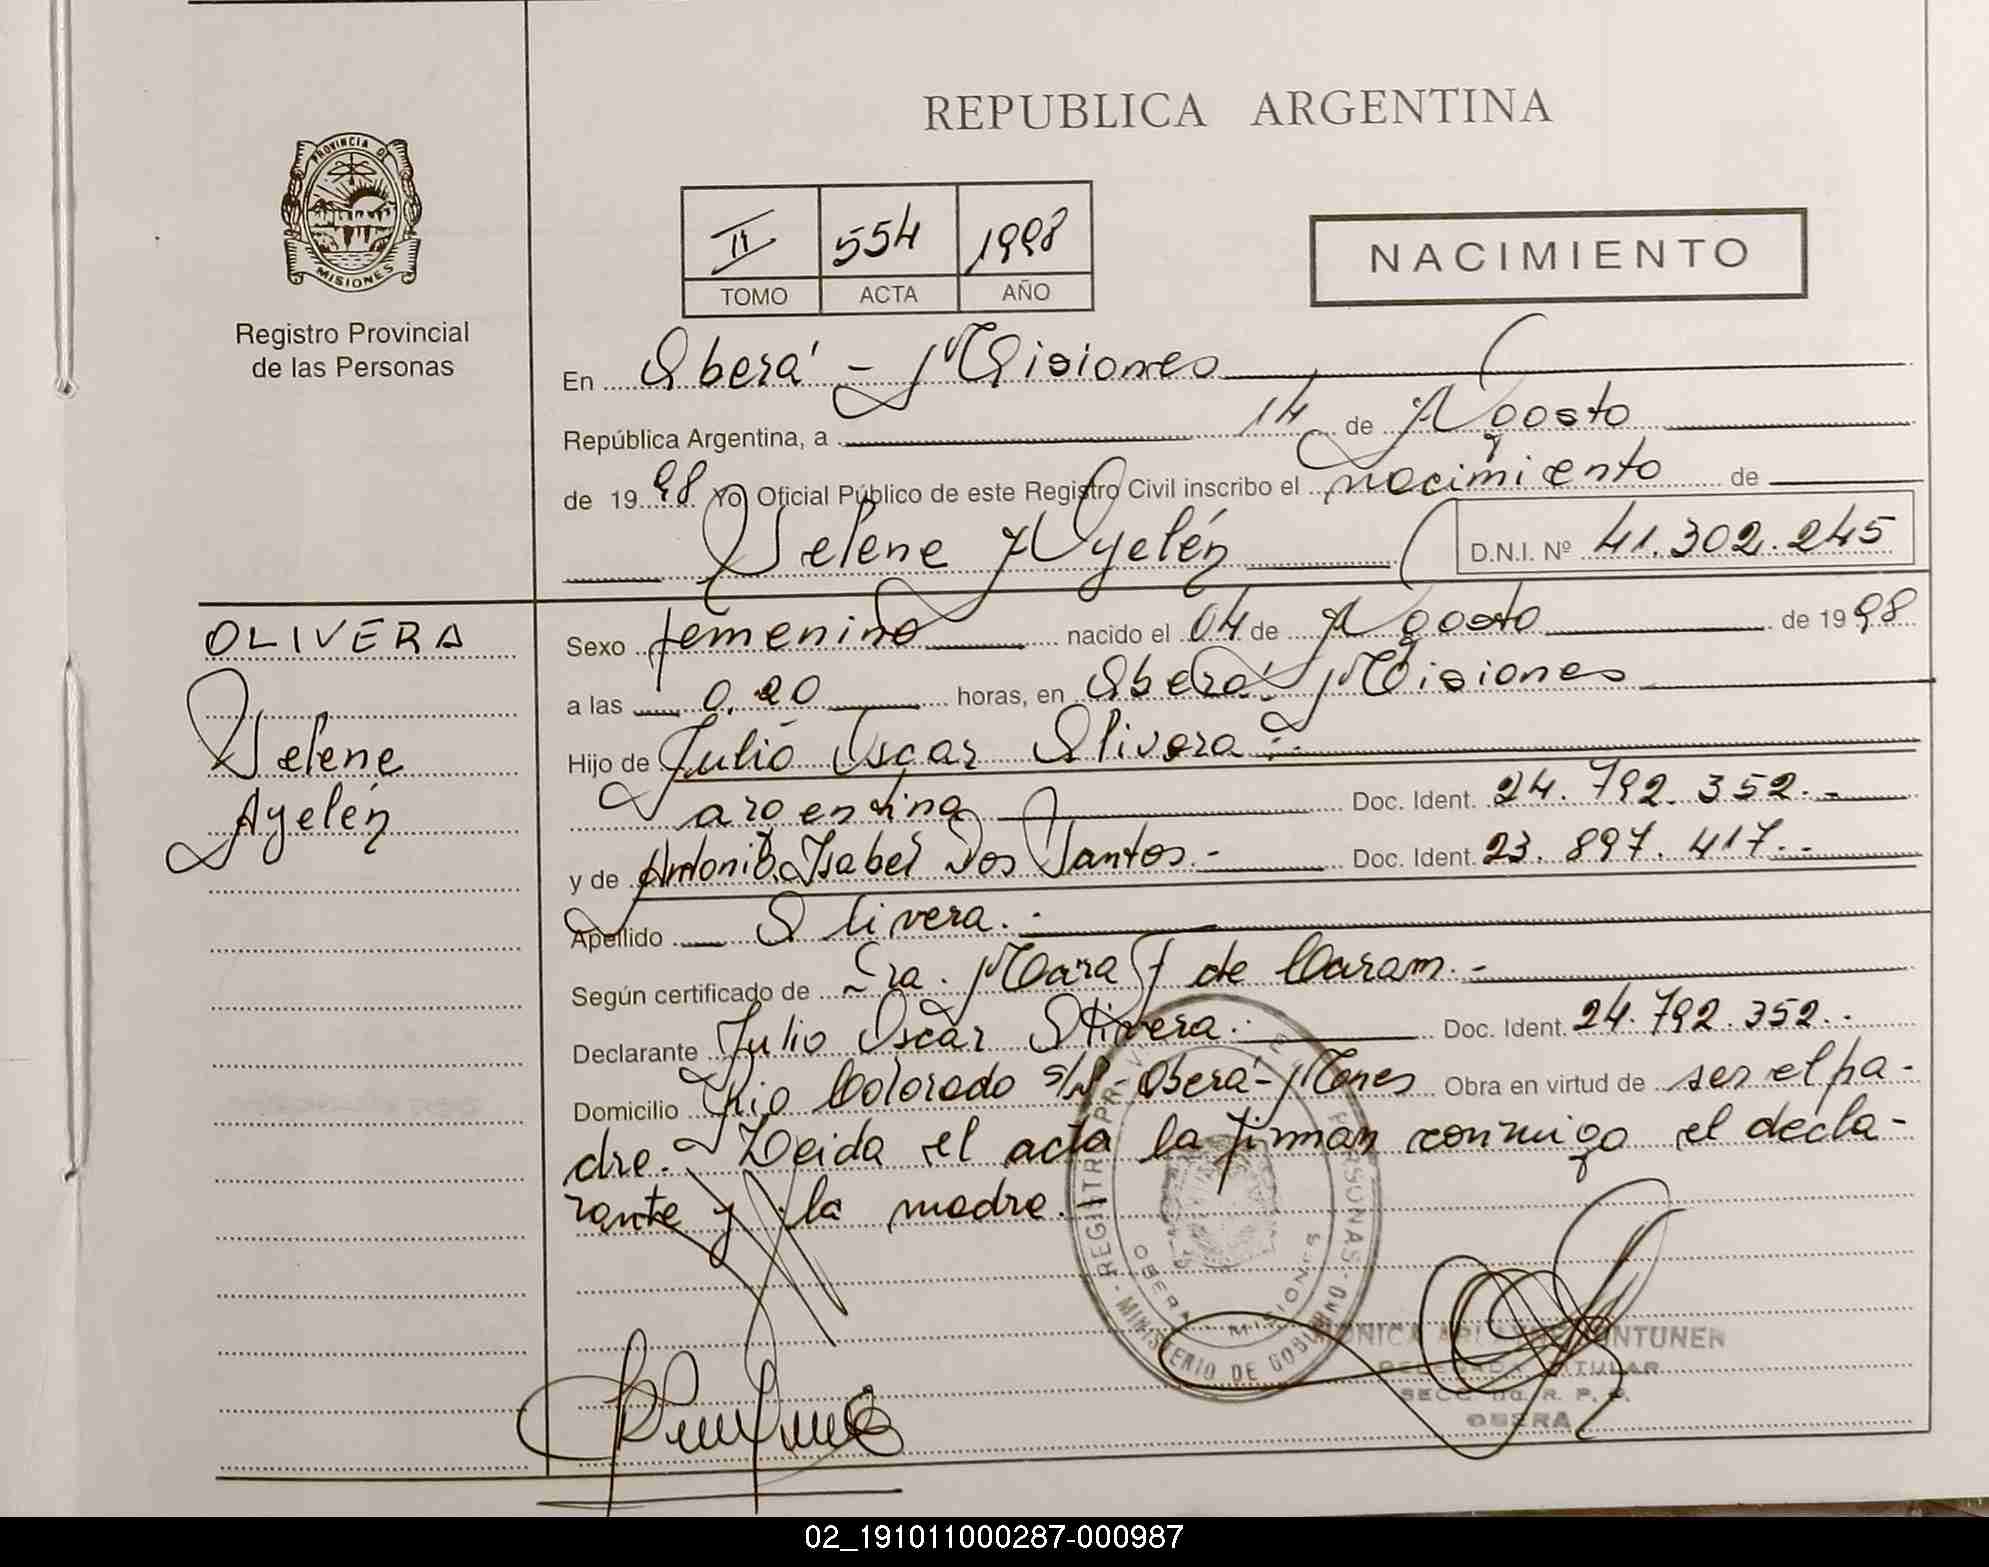 REPUBLICA ARGENTINA
PROVINCIA DE
MISIONES
Registro Provincial
de las Personas
II 554 1998
TOMO ACTA AÑO
NACIMIENTO
En Oberá - Misiones
República Argentina, a 14 de Agosto
de 1998 Yo Oficial Público de este Registro Civil inscribo el nacimiento de
Selene Ayelén D.N.I. Nº 41.302.245
OLIVERA
Selene
Ayelén
Sexo femenino nacido el 04 de Agosto de 1998
a las 0.20 horas, en Oberá - Misiones
Hijo de Julio Oscar Olivera.-
argentina Doc. Ident. 24.792.352.-
y de Antonia Isabel Dos Santos.- Doc. Ident. 23.897.417.-
Apellido Olivera.-
Según certificado de Sra. Mara de Caram.-
Declarante Julio Oscar Olivera.- Doc. Ident. 24.792.352.-
Domicilio Rio Colorado s/n - Oberá - Mnes Obra en virtud de ser el pa-
dre.- Leida el acta la firman conmigo el decla-
rante y la madre.
OBERA MISIONES
MINISTERIO DE GOBIERNO
MONICA ANTUNEN
DELEGADA TITULAR
SECC. R. P. P.
OBERA
02_191011000287-000987